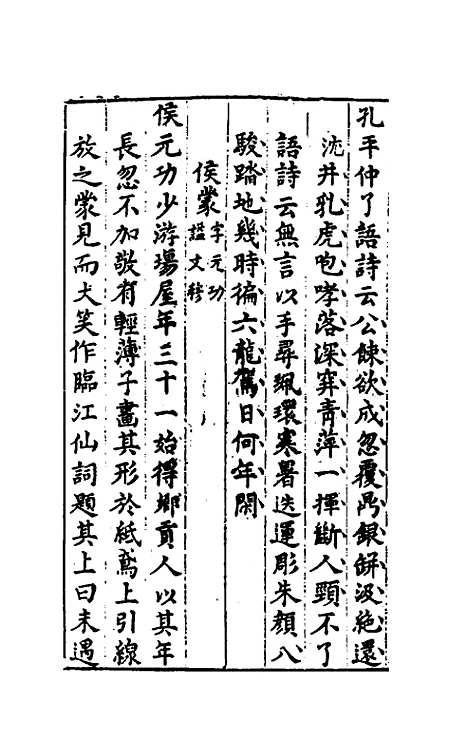 孔平仲了語詩云公餗欲成忽覆鼎銀缾汲絶還
沈井乳虎咆哮落深穽青萍一揮斷人頸不了
語詩云無言以手尋珮環寒暑迭運彫朱顏八
駿踏地幾時徧六龍駕日何年閑
侯蒙字元功謚文穆
侯元功少游場屋年三十一始得鄉貢人以其年
長忽不加敬有輕薄子畫其形於紙鳶上引線
放之蒙見而大笑作臨江仙詞題其上曰未遇